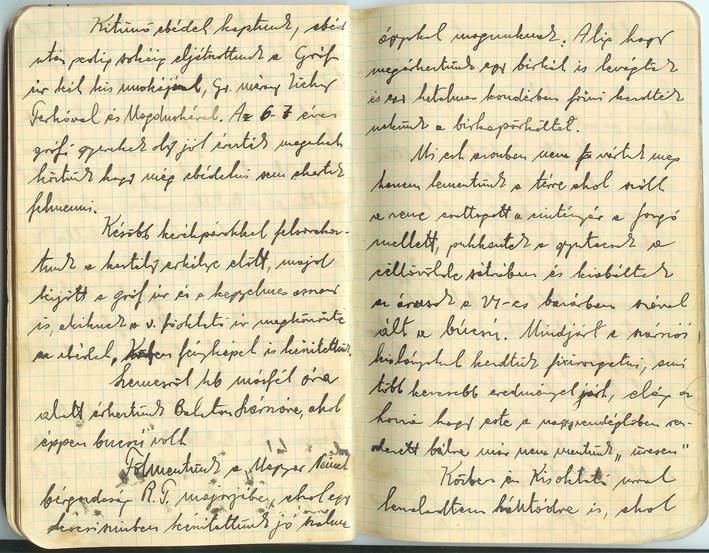 Kitünő ebédet kaptunk, ebéd
után pedig sokáig eljátszottunk a Gróf
úr két kis unokájával, Gr. Zichy
Ferkóval és Magduskával. Az 6-7 éves
grófi gyerekek oly jól érezték magukat
köztünk hogy még ebédelni sem akartak
felmenni.
Később kerékpárokkal felsorakoz-
tunk a kastély erkélye előtt, majd
kijött a gróf úr és a kegyelmes asszony
is, akiknek a v. főoktató úr megköszönte
az ebédet, fényképet is készítettünk.
Lemenről kb másfél óra
alatt érkeztünk Balaton Szárszóra, ahol
éppen bucsú volt.
Felmentünk a Magyar
bérgazdaság R.T. majorjába, ahol egy
kocsiszínben készítettünk jó szalma
ágyakat magunknak. Alig hogy
megérkeztünk egy birkát is levágtak
és egy hatalmas kondérban főzni kezdték
nekünk a birkapörköltet.
Mi ezt azonban nem vártuk meg
hanem lementünk a térre ahol szólt
a zene csattogott a forgó
mellett, pukkantak a a
céllövölde sátrában és kiabáltak
az árusok a VI-os bazárban szóval
állt a bucsú. Mindjárt a szárszói
kislányokat kezdtük fixirozgatni, ami
több kevesebb eredménnyel járt, elég az
hozzá hogy este a nagyvendéglőben ren-
dezett bálra már nem mentünk „üresen"
Közben én Kisoktató úrral
leszaladtam is, ahol